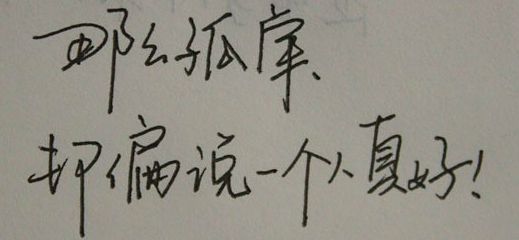 那么孤单、
却偏说一个人真好!